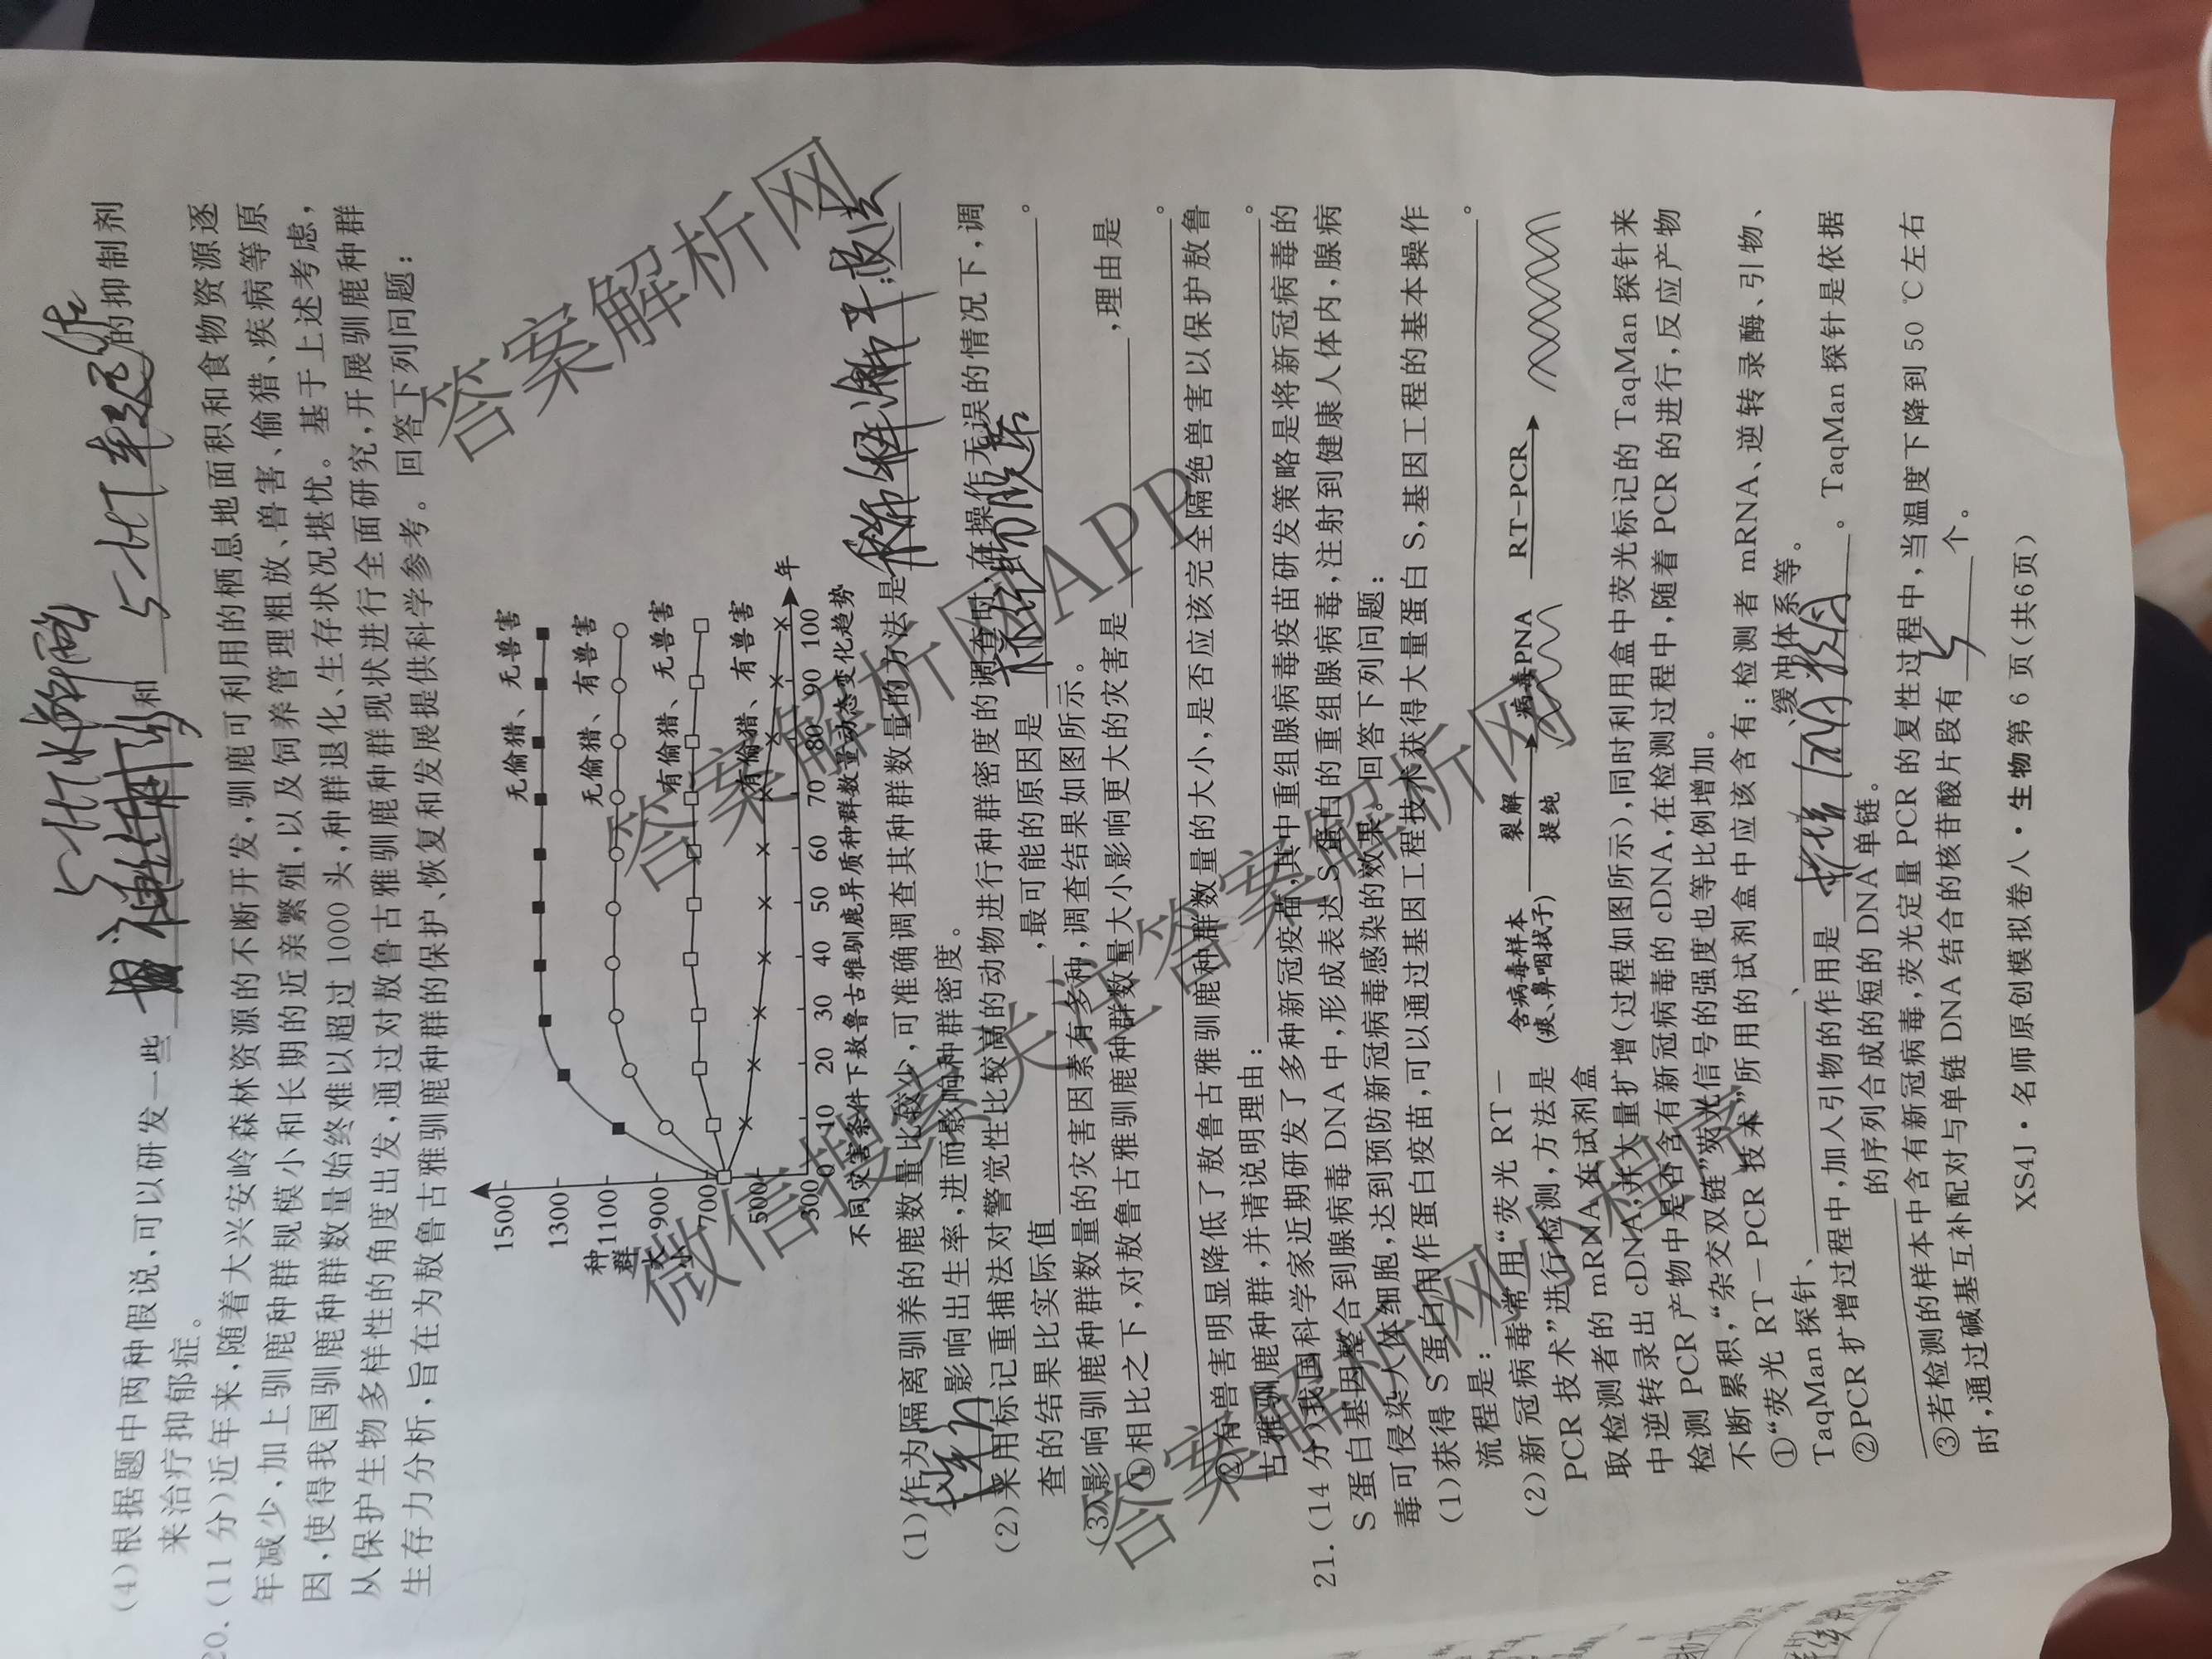 (4)根据题中两种假说,可以研发一些 和 的抑制剂
来治疗抑郁症。
20.(11分)近年来,随着大兴安岭森林资源的不断开发,驯鹿可利用的栖息地面积和食物资源逐
年减少,加上驯鹿种群规模小和长期的近亲繁殖,以及饲养管理粗放、兽害、偷猎、疾病等原
因,使得我国驯鹿种群数量始终难以超过1000头,种群退化、生存状况堪忧。基于上述考虑,
从保护生物多样性的角度出发,通过对敖鲁古雅驯鹿种群现状进行全面研究,开展驯鹿种群
生存力分析,旨在为敖鲁古雅驯鹿种群的保护、恢复和发展提供科学参考。回答下列问题:
种群大小
1500
1300
1100
900
700
500
300
无偷猎、无兽害
无偷猎、有兽害
有偷猎、无兽害
有偷猎、有兽害
0 10 20 30 40 50 60 70 80 90 100 年
不同灾害条件下敖鲁古雅驯鹿异质种群数量动态变化趋势
(1)作为隔离驯养的鹿数量比较少,可准确调查其种群数量的方法是
影响出生率,进而影响种群密度。
(2)采用标记重捕法对警觉性比较高的动物进行种群密度的调查时,在操作无误的情况下,调
查的结果比实际值 ,最可能的原因是 。
(3)影响驯鹿种群数量的灾害因素有多种,调查结果如图所示。
①相比之下,对敖鲁古雅驯鹿种群数量大小影响更大的灾害是 ,理由是
。
②有兽害明显降低了敖鲁古雅驯鹿种群数量的大小,是否应该完全隔绝兽害以保护敖鲁
古雅驯鹿种群,并请说明理由: 。
21.(14分)我国科学家近期研发了多种新冠疫苗,其中重组腺病毒疫苗研发策略是将新冠病毒的
S蛋白基因整合到腺病毒DNA中,形成表达S蛋白的重组腺病毒,注射到健康人体内,腺病
毒可侵染人体细胞,达到预防新冠病毒感染的效果。回答下列问题:
(1)获得S蛋白用作蛋白疫苗,可以通过基因工程技术获得大量蛋白S,基因工程的基本操作
流程是: 。
(2)新冠病毒常用“荧光RT-
PCR技术”进行检测,方法是
取检测者的mRNA,在试剂盒
含病毒样本
(痰、鼻咽拭子)
裂解
提纯
病毒PNA
RT-PCR
中逆转录出cDNA,并大量扩增(过程如图所示),同时利用盒中荧光标记的TaqMan探针来
检测PCR产物中是否含有新冠病毒的cDNA,在检测过程中,随着PCR的进行,反应产物
不断累积,“杂交双链”荧光信号的强度也等比例增加。
①“荧光RT-PCR技术”所用的试剂盒中应该含有:检测者mRNA、逆转录酶、引物、
TaqMan探针、 、 缓冲体系等。
②PCR扩增过程中,加入引物的作用是 。TaqMan探针是依据
的序列合成的短的DNA单链。
③若检测的样本中含有新冠病毒,荧光定量PCR的复性过程中,当温度下降到50℃左右
时,通过碱基互补配对与单链DNA结合的核苷酸片段有 5 个。
XS4J·名师原创模拟卷八·生物第6页(共6页)
答案解析网
微信搜索关注答案解析网APP
答案解析网